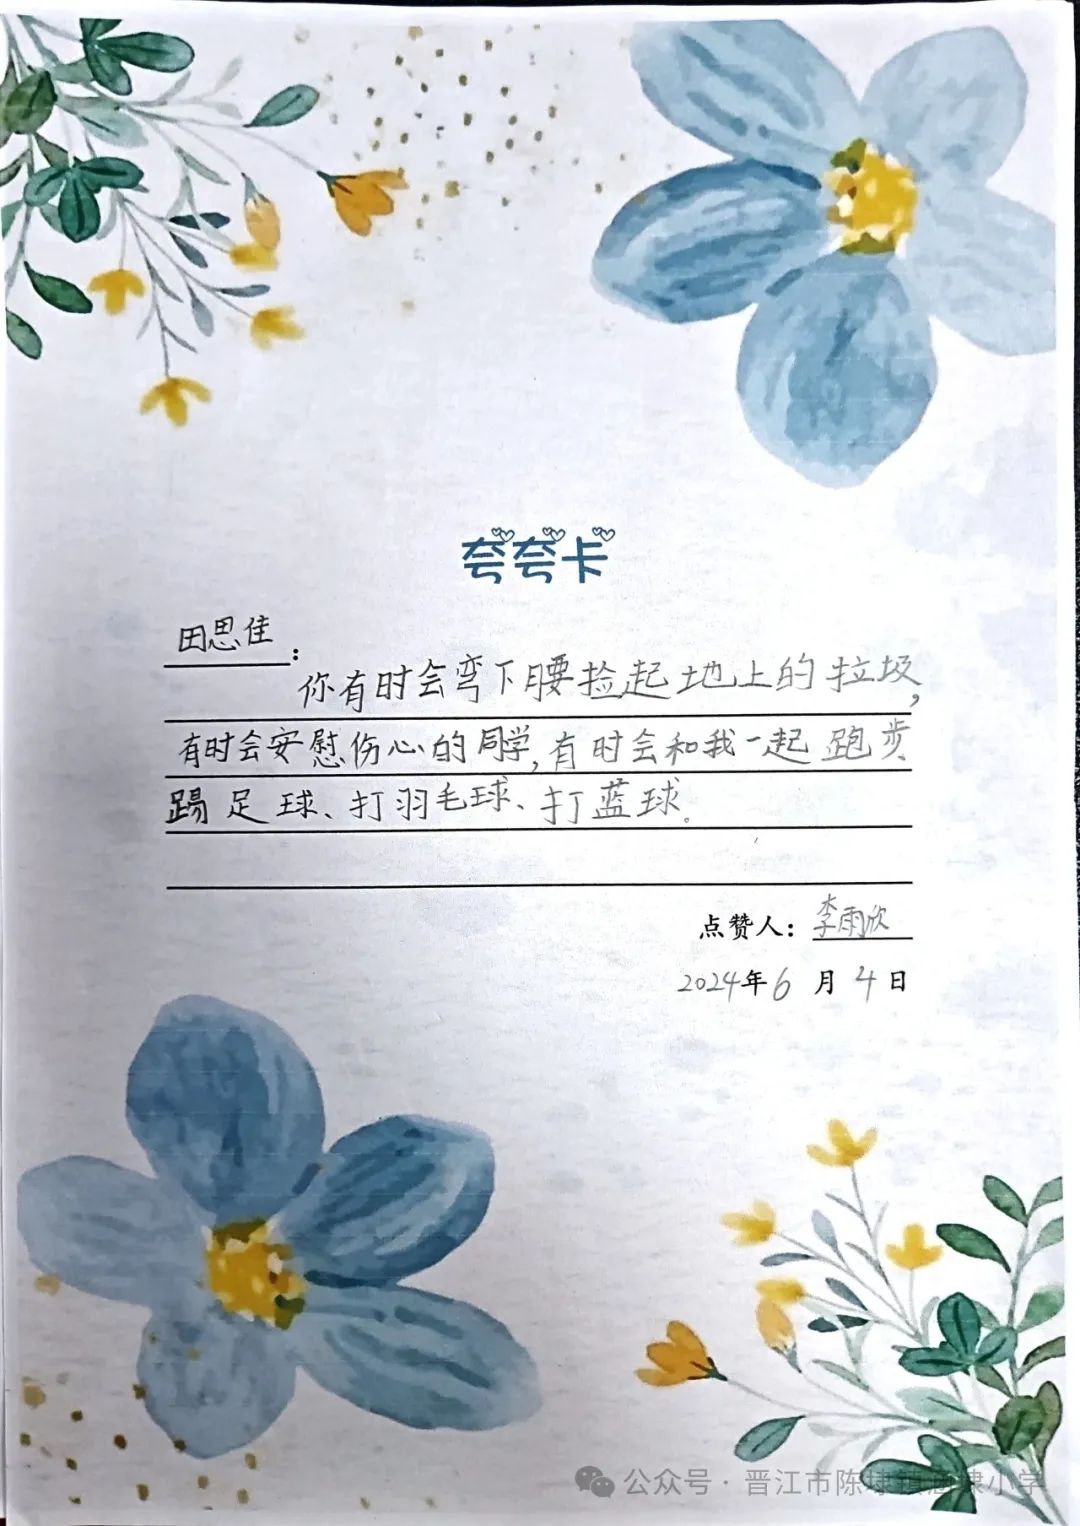 夸夸卡
田思佳：
你有时会弯下腰捡起地上的垃圾，
有时会安慰伤心的同学，有时会和我一起跑步
踢足球、打羽毛球、打蓝球。
点赞人：李雨欣
2024年6月4日
公众号·晋江市陈埭镇 小学